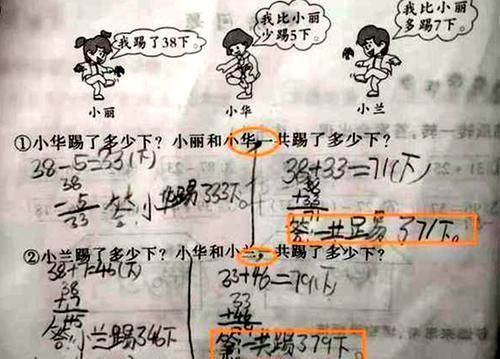 我踢了38下。
我比小丽
少踢5下。
我比小丽
多踢7下。
小丽
小华
小兰
①小华踢了多少下？小丽和小华一共踢了多少下？
38-5=33(下)
38
- 5
33
答:小华踢了33下。
38+33=71(下)
38
+33
71
答:一共足易了71下。
②小兰踢了多少下？小华和小兰，共踢了多少下？
38+7=46(下)
38
+7
46
答:小兰踢了46下
33+46=79(下)
33
+46
答:一共踢了79下。